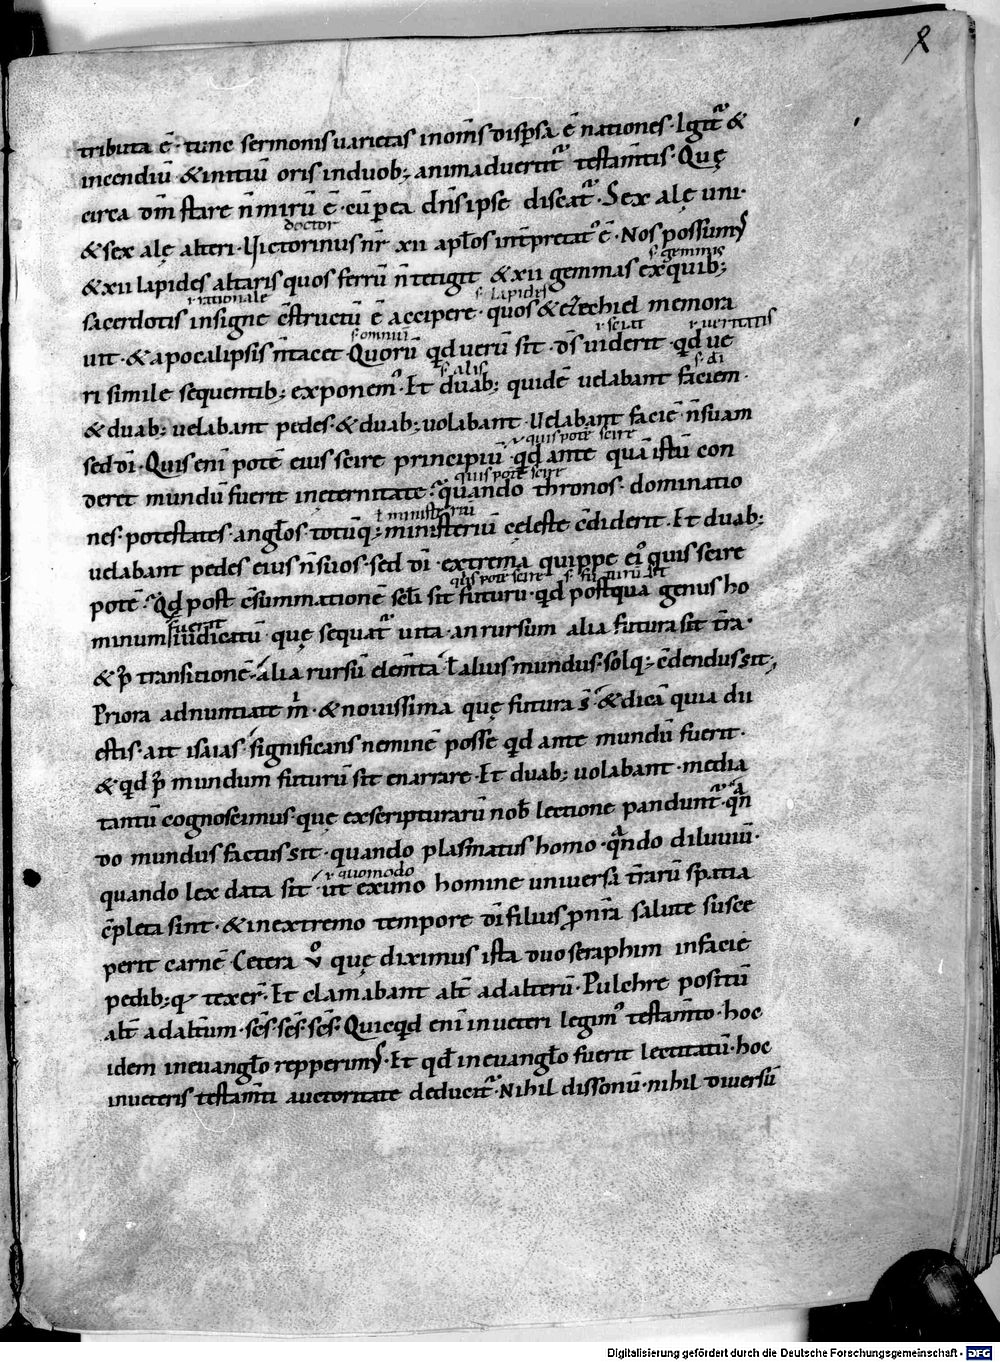 8
tributa ē· tunc sermonis uarietas in om̄s disp̄sa ē nationes· Igit̉ &
incendiū & initiū oris in duob; animaduertit̉ testam̄tis· Quę
circa dm̄ stare n̄ mirū ē· cū p ea dn̄s ipse discat̉· Sex alę uni·
doctor
& sex alę alteri· Uictorinus nr̄ xii apl̄os int̄pretat̉ ē· Nos possumꝰ
s· gemmis
& xii lapides altaris quos ferrū n̄ tetigit & xii gemmas ex quib;
r rationale s· lapides
sacerdotis insigne c̄structū ē accipere· quos & ezechiel memora
s· omniū r sciat r ueritatis
uit· & apocalipsis n̄ tacet· Quorū qd uerū sit· ds̄ uiderit· qd ue
s· alis s· di
ri simile sequentib; exponemꝰ· Et duab; quidē uelabant faciem·
& duab; uelabant pedes· & duab; uolabant· Uelabant faciē n̄ suam
sed dī· Quis enī potē eius scire principiū· qd ante quā istū con
r quis potē scire
quis potē scire
deret mundū fuerit in ęternitate· quando thronos· dominatio
ł ministeriū
nes· potestates· angl̄os· totūq; ministeriū cęleste c̄diderit· Et duab;
uelabant pedes eius n̄ suos· sed dī· extrema quippe eiꝰ quis scire
quis potē scire s· futurū sit
potē· Qd post c̄summationē scl̄i sit futurū· qd postquā genus ho
fuerit
minum iudicatū· quę sequat̉ uita· an rursum alia futura sit t̄ra·
& p̄ transitionē· alia rursū elem̄ta ł alius mundus· solq; c̄dendus sit,
Priora adnuntiate m̄· & nouissima quę futura s̄· & dicā quia dii
estis· ait isaias· significans neminē posse qd ante mundū fuerit·
& qd p̄ mundum futurū sit enarrare· Et duab; uolabant· media
tantū cognoscimus· quę ex scripturarū nob̄ lectione pandunt̉· qn̄
do mundus factus sit· quando plasmatus homo· qn̄do diluuiū·
r quomodo
quando lex data sit· ut ex uno homine uniuersa t̄rarū spatia
c̄pleta sint· & in extremo tempore dī filius p nr̄a salute susce
perit carnē· Cetera v̊ quę diximus ista duo seraphim in faciē
pedib;q· texer̄· Et clamabant alt̄ ad alterū· Pulchre positū
alt̄ ad alt̄um· scs̄· scs̄· scs̄· Quicqd enī in ueteri legimꝰ testam̄to· hoc
idem in euangl̄o repperimꝰ· Et qd in euangl̄o fuerit lectitatū· hoc
in ueteris testam̄ti auctoritate deducit̉· Nihil dissonū· nihil diuersū
Digitalisierung gefördert durch die Deutsche Forschungsgemeinschaft - DFG